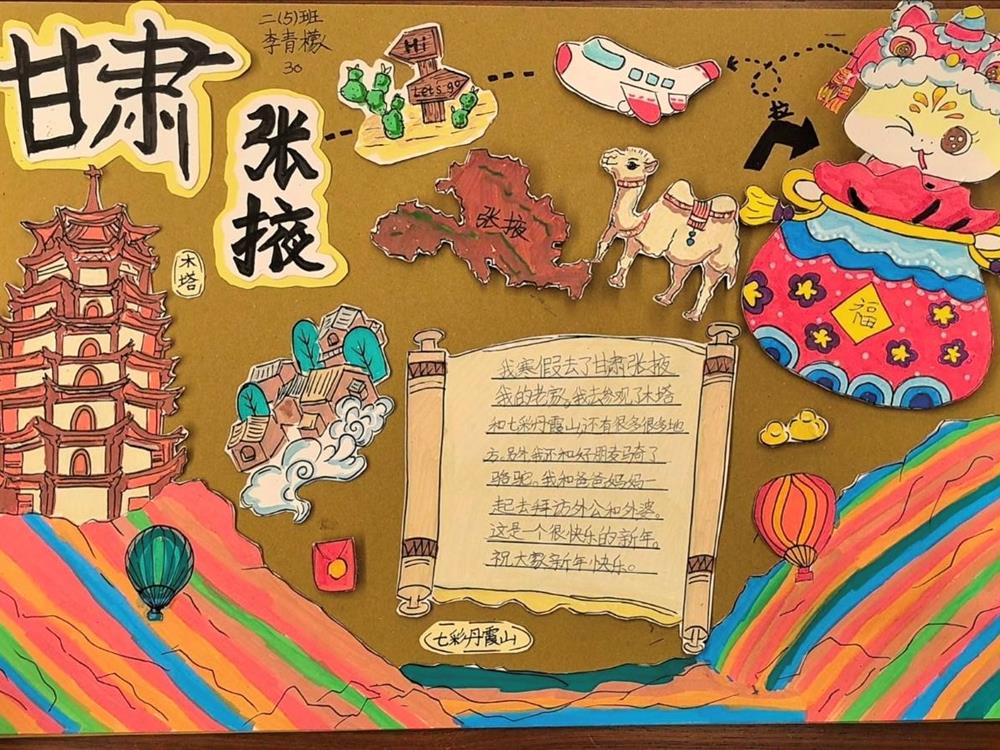 甘肃
张掖
二(5)班
李青檬
30
Hi
Let's go
拉
张掖
木塔
福
我寒假去了甘肃张掖
我的老家,我去参观了木塔
和七彩丹霞山,还有很多很多地
方,另外我还和好朋友骑了
骆驼。我和爸爸妈妈一
起去拜访外公和外婆。
这是一个很快乐的新年。
祝大家新年快乐。
七彩丹霞山